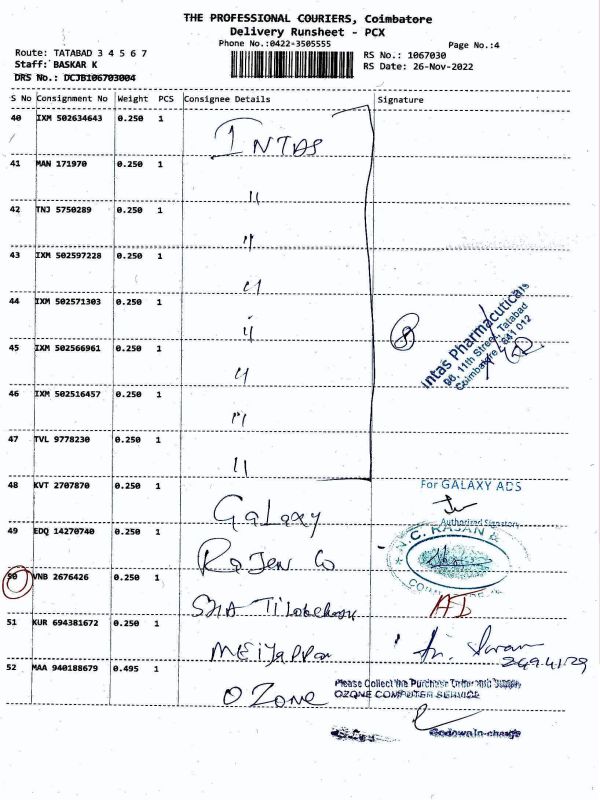 THE PROFESSIONAL COURIERS, Coimbatore
Delivery Runsheet - PCX
Phone No.:0422-3505555
Page No.:4
Route: TATABAD 3 4 5 6 7
RS No.: 1067030
Staff: BASKAR K
RS Date: 26-Nov-2022
DRS No.: DCJB106703004
S No Consignment No Weight PCS Consignee Details Signature
40 IXM 502634643 0.250 1 INTAS
41 MAN 171970 0.250 1 "
42 TNJ 5750289 0.250 1 "
43 IXM 502597228 0.250 1 "
44 IXM 502571303 0.250 1 "
8
Intas Pharmaceuticals
96, 11th Street, Tatabad
Coimbatore - 641 012
45 IXM 502566961 0.250 1 "
46 IXM 502516457 0.250 1 "
47 TVL 9778230 0.250 1 "
48 KVT 2707870 0.250 1 Galaxy
For GALAXY ADS
Authorised Signatory
49 EDQ 14270740 0.250 1 Rajen Co
N.C. RAJAN &
50 VNB 2676426 0.250 1
51 KUR 694381672 0.250 1 MEiyappa
52 MAA 940188679 0.495 1 OZone
Please Collect the Purchase Order
OZONE COMPUTER SERVICE
Godown In-charge